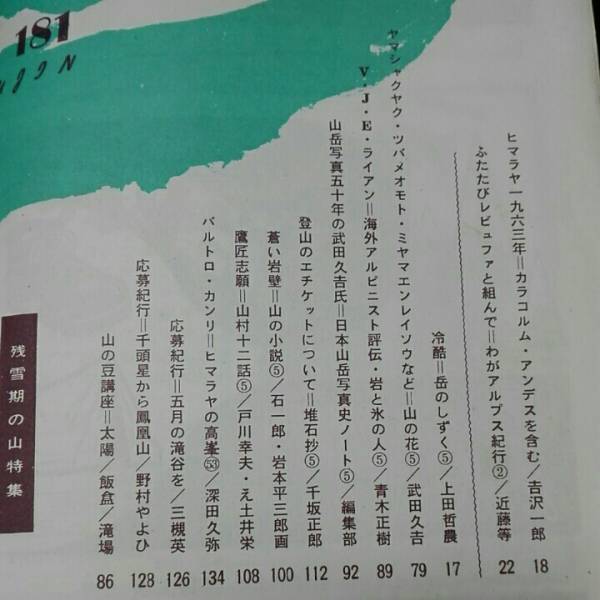 181
ヒマラヤ一九六三年＝カラコルム・アンデスを含む／吉沢一郎 18
ふたたびレビュファと組んで＝わがアルプス紀行②／近藤等 22
冷酷＝岳のしずく⑤／上田哲農 17
ヤマシャクヤク・ツバメオモト・ミヤマエンレイソウなど＝山の花⑤／武田久吉 79
V・J・E・ライアン＝海外アルピニスト評伝・岩と氷の人⑤／青木正樹 89
山岳写真五十年の武田久吉氏＝日本山岳写真史ノート⑤／編集部 92
登山のエチケットについて＝堆石抄⑤／千坂正郎 112
蒼い岩壁＝山の小説⑤／石一郎・岩本平三郎画 100
鷹匠志願＝山村十二話⑤／戸川幸夫・え土井栄 108
バルトロ・カンリ＝ヒマラヤの高峯㊳／深田久弥 134
応募紀行＝五月の滝谷を／三槻英 126
応募紀行＝千頭星から鳳凰山／野村やよひ 128
山の豆講座＝太陽／飯盒／滝場 86
残雪期の山特集